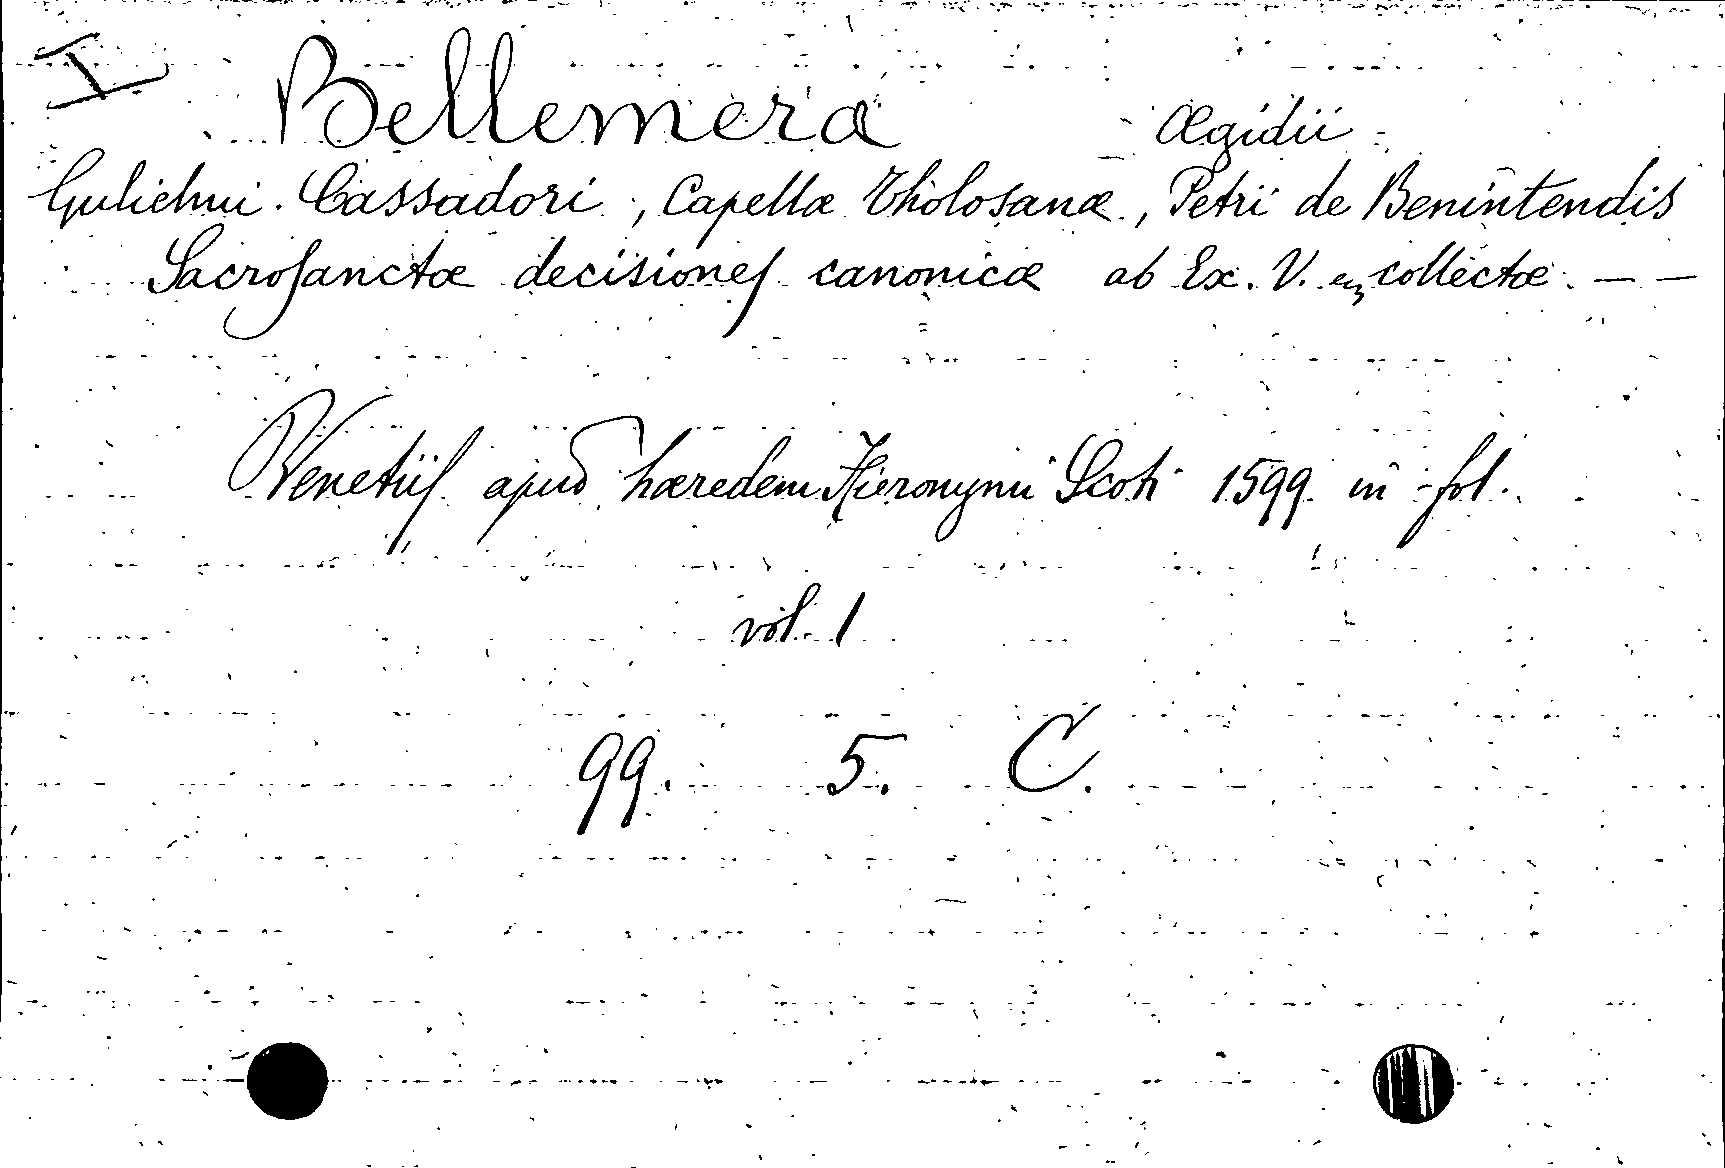 I Bellemera Ægidii
Gulielmi Cassadori, Capellæ Tholosanæ, Petri de Benintendis
Sacrosanctæ decisiones canonicæ ab Ex. V. collectæ. — —
Venetiis apud hæredem Hieronymi Scoti 1599 in-fol.
vol. 1
99. 5. C.